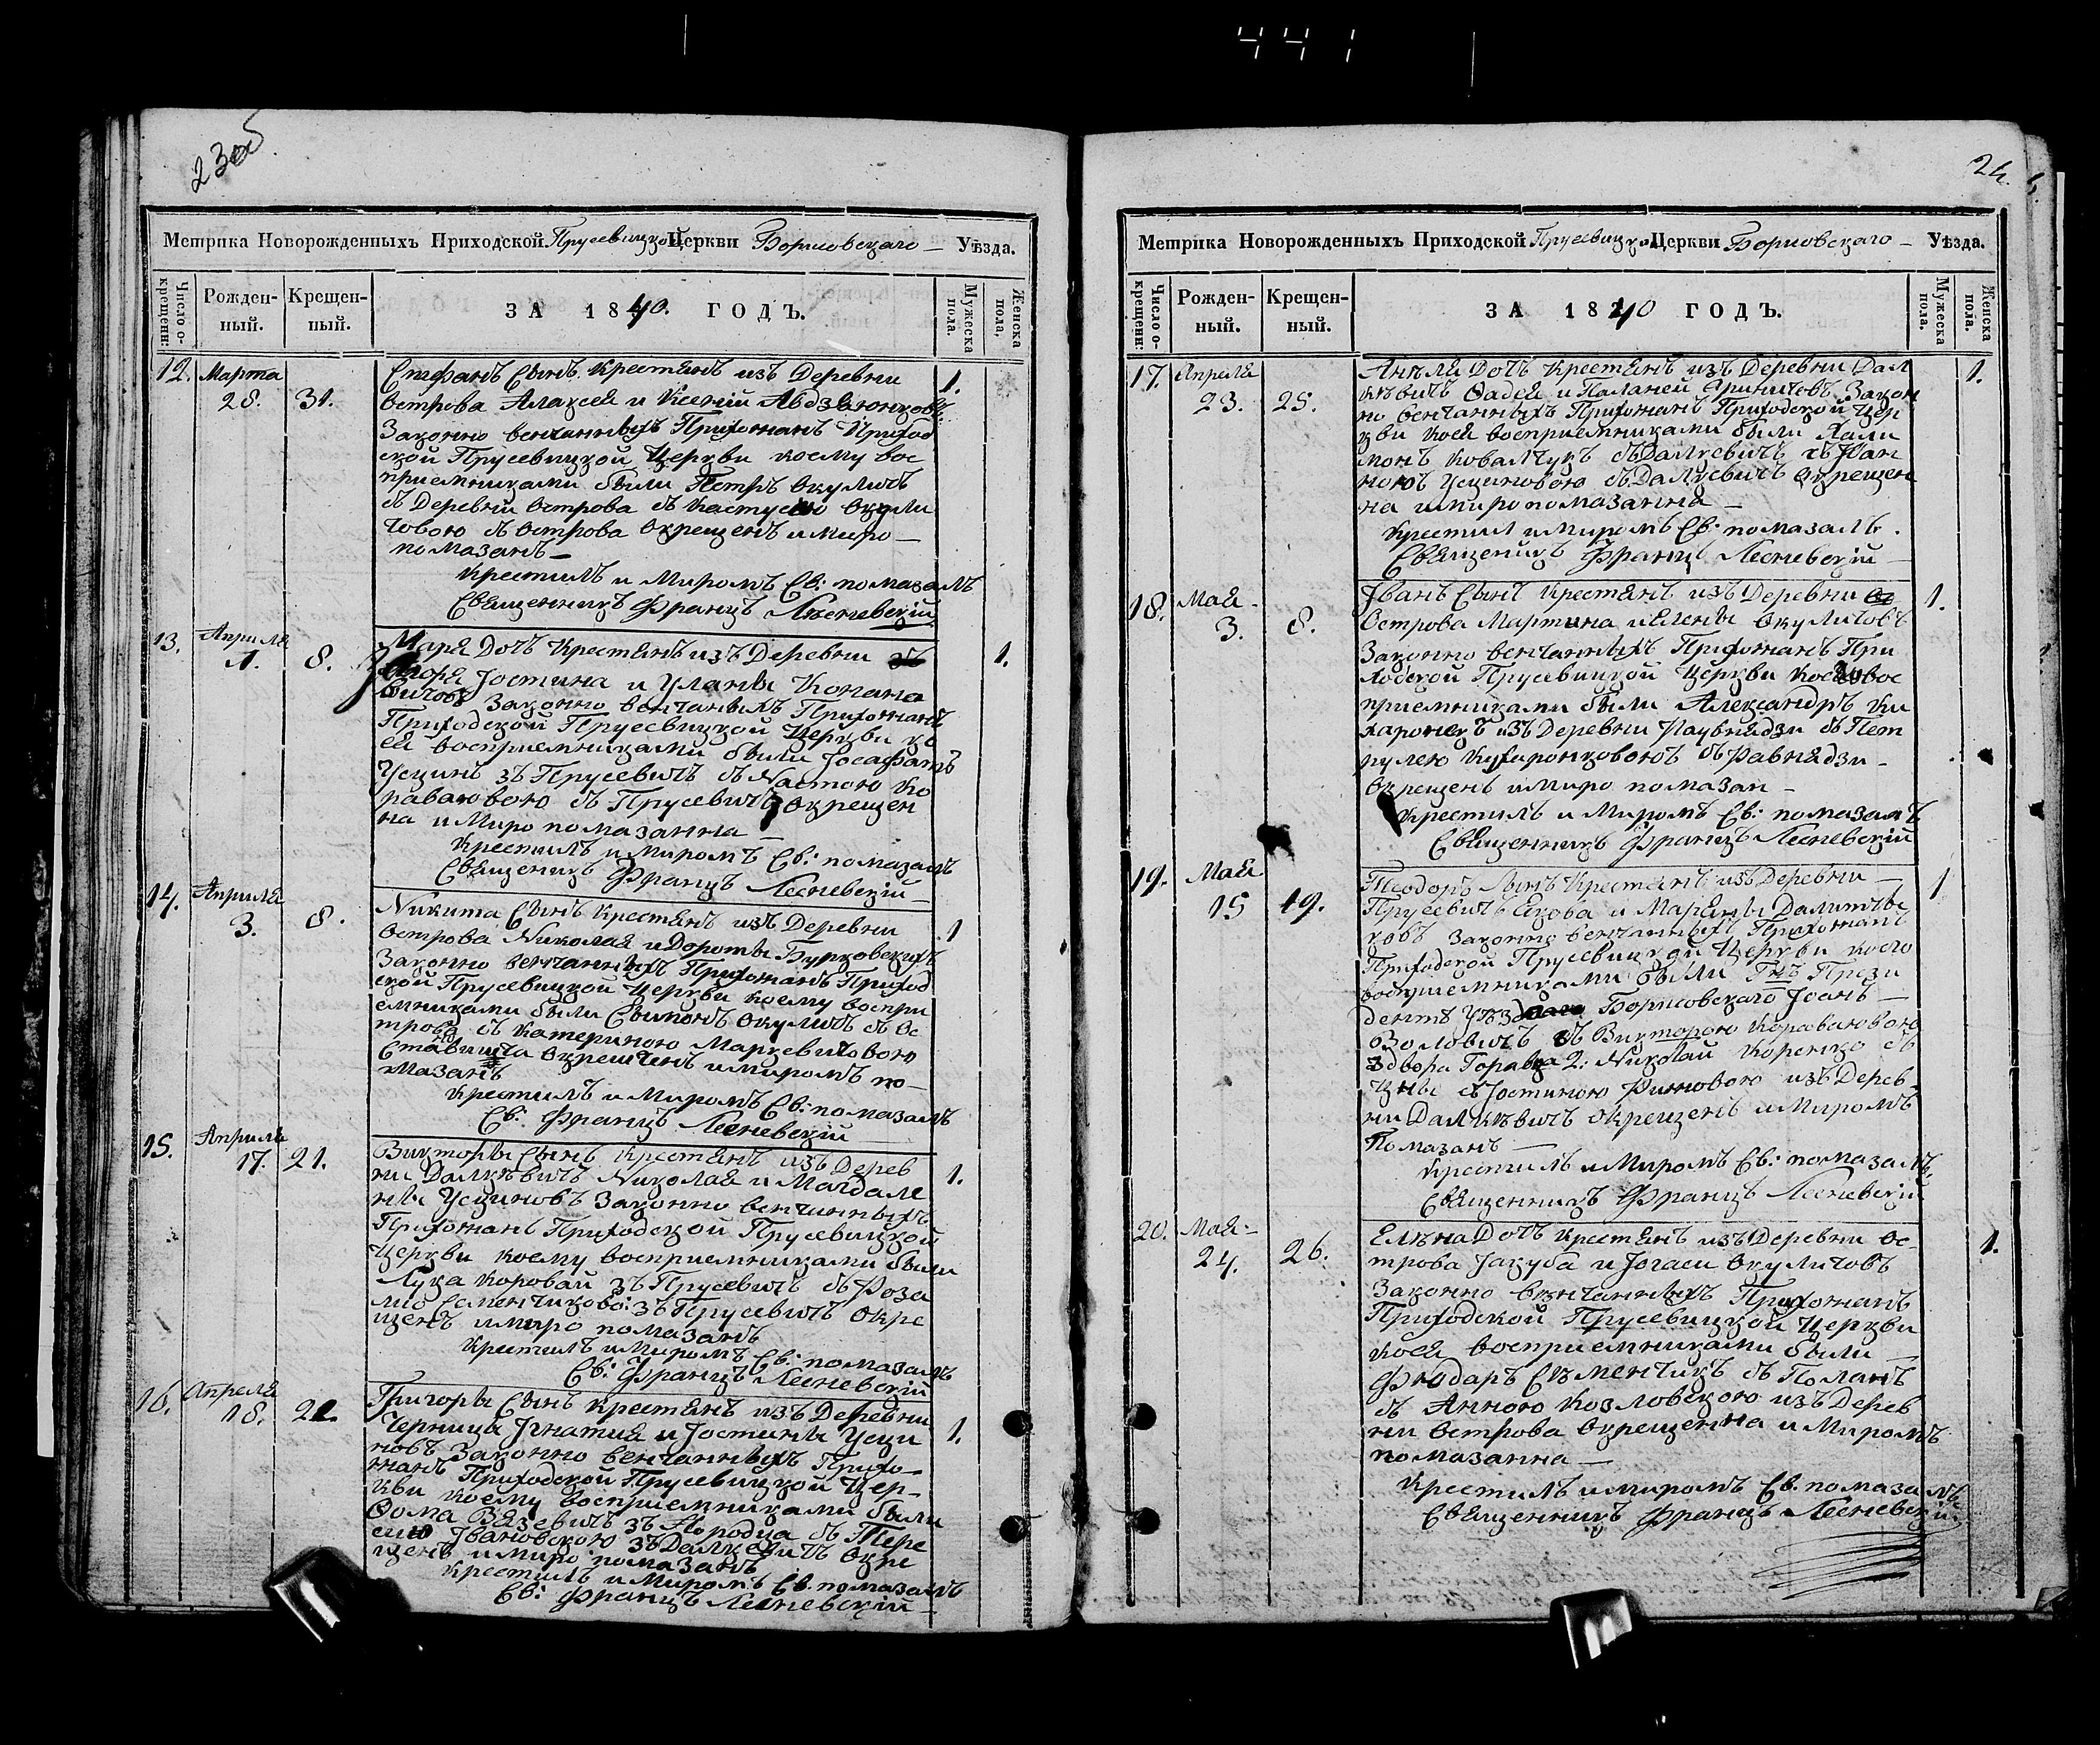 441
23об
Метрика Новорожденныхъ Приходской Прусевицкой Церкви Борисовскаго Уѣзда.
Число о-крещени:
Рожден-ный.
Крещен-ный.
ЗА 1840. ГОДЪ.
Мужеска пола.
Женска пола,
12. Марта 28. 31. 1.
Стефанъ Сынъ Крестянъ изъ Деревни
Острова Алаксея и Ксеніи
Законно венчанныхъ Прихожанъ Приход
ской Прусевицкой Церкви коему вос
приемниками были Петръ Окуличъ
съ Деревни Острова съ Кастусею Окули
човою съ Острова Окрещенъ и миро
помазанъ
Крестилъ и Миромъ Св: помазалъ
Священникъ Францъ Лесневскій
13. Апреля 1. 8. 1.
Маря Дочь Крестянъ изъ Деревни
Іостина и Уляны
Законно венчаныхъ Прихожанъ
Приходской Прусевицкой Церкви ко
ей восприемниками были Іосафатъ
Усцинъ зъ Прусевичъ съ Настою Ко
раваювою съ Прусевичъ Окрещен
на и Миро помазанна
Крестилъ и Миромъ Св: помазалъ
Священикъ Францъ Лесневскій
14. Апреля 3. 8. 1
Никита Сынъ Крестянъ изъ Деревни
Острова Николая и Дороты Бурковскихъ
Законно венчанныхъ Прихожанъ Приход
ской Прусевицкой Церкви коему воспри
емниками были Сымонъ Окуличъ съ Ос
трова съ Катериною Маркевичовою
Окрешченъ и миромъ по
мазанъ
Крестилъ и Миромъ Св: помазалъ
Св: Францъ Лесневскій
15. Апреля 17. 21. 1.
Викторы Сынъ Крестянъ изъ Дерев
ни Далькѣвичъ Николая и Магдале
ны Усциновъ Законно венчанныхъ
Прихожанъ Приходской Прусевицкой
Церкви коему восприемниками были
Лука Коровай зъ Прусевичъ съ Роза
лію Семенчиково: зъ Прусевичъ Окре
щенъ и миро помазанъ
Крестилъ и Миромъ Св: помазалъ
Св: Францъ Лесневскій
16. Апреля 18. 1.
Григоры Сынъ Крестянъ изъ Деревни
Черница Игнатія и Іостины Усци
новъ Законно венчанныхъ Прихо
жанъ Приходской Прусевицкой Цер-
кви коему восприемниками были
Ѳома Вязевичъ зъ съ Тере
сію Івановскою зъ Далкевичъ Окре
щенъ и миро помазанъ
Крестилъ и Миромъ Св. помазалъ
Св: Францъ Лесневскій
24.
Метрика Новорожденныхъ Приходской Прусевицко Церкви Борисовскаго Уѣзда.
Число о-крещени:
Рожден-ный.
Крещен-ный.
ЗА 1840 ГОДЪ.
Мужеска пола.
Женска пола.
17. Апреля 23. 25. 1.
Анѣля Дочь Крестянъ изъ Деревни Дал
кѣвичъ Ѳадея и Паланеи Законн
но венчанныхъ Прихожанъ Приходской Цер
кви коея восприемниками были
монъ Ковалчукъ съ Далкевичъ съ Іван
ною Усциновою съ Далкевичъ Окрещен
на и миро помазанна
Крестил и Миромъ Св: помазалъ
Священикъ Францъ Лесневскій
18. Мая 3. 8. 1.
Іванъ Сынъ Крестянъ изъ Деревни
Острова Мартина и Елены Окуличовъ
Законно венчанныхъ Прихожанъ При
ходской Прусевицкой Церкви вос
приемниками были Александръ
изъ Деревни съ Пет
рулею
Окрещенъ и миро помазан
Крестилъ и Миромъ Св: помазалъ
Священникъ Францъ Лесневскій
19. Мая 15 19. 1
Теодоръ Сынъ Крестянъ изъ Деревни
Прусевичъ Якова и Марьяны
Законно венчанныхъ Прихожанъ
Приходской Прусевицкой Церкви коего
восприемниками были Прези
дентъ Борисовскаго Іоанъ
съ Викторою Караваювою
здвора 2: Николай Коренко съ
съ Іостиною изъ Дерев
ни Далькѣвичъ Окрещенъ и Миромъ
помазанъ
Крестилъ и Миромъ Св: помазалъ
Священникъ Францъ Лесневскій
20. Мая 24. 26. 1.
Елѣна Дочь Крестянъ изъ Деревни Ос-
трова Іакуба и Окуличовъ
Законно венчанныхъ Прихожанъ
Приходской Прусевицкой Церкви
коея восприемниками были
Фіодаръ Сѣменчикъ съ
съ Анною Козловскою изъ Дерев
ни Острова Окрещенна и Миромъ
помазанна
Крестилъ и миромъ Св. помазалъ
Священникъ Францъ Лесневскій